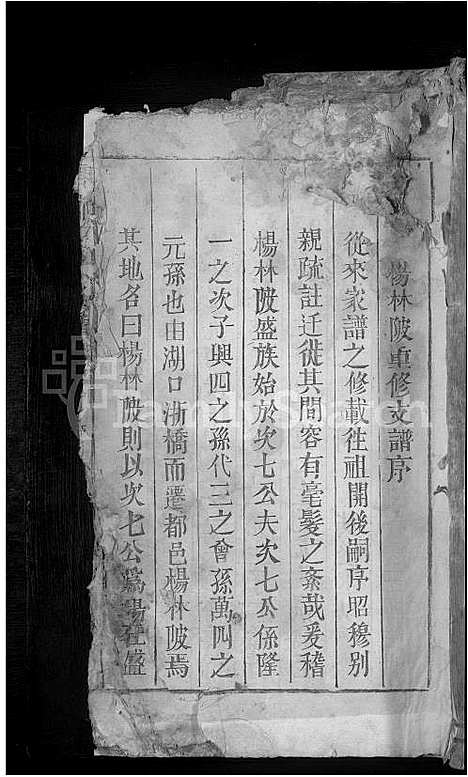 楊林陂重修支譜序
從來家譜之修載徃祖開後嗣序昭穆別
親疏註迁徙其間容有毫髮之紊哉爰稽
楊林陂盛族始於次七公夫次七公係隆
一之次子興四之孫代三之會孫萬四之
元孫也由湖口漸橋而遷都邑楊林陂焉
其地名曰楊林陂則以次七公為楊在盛
FamilySearch